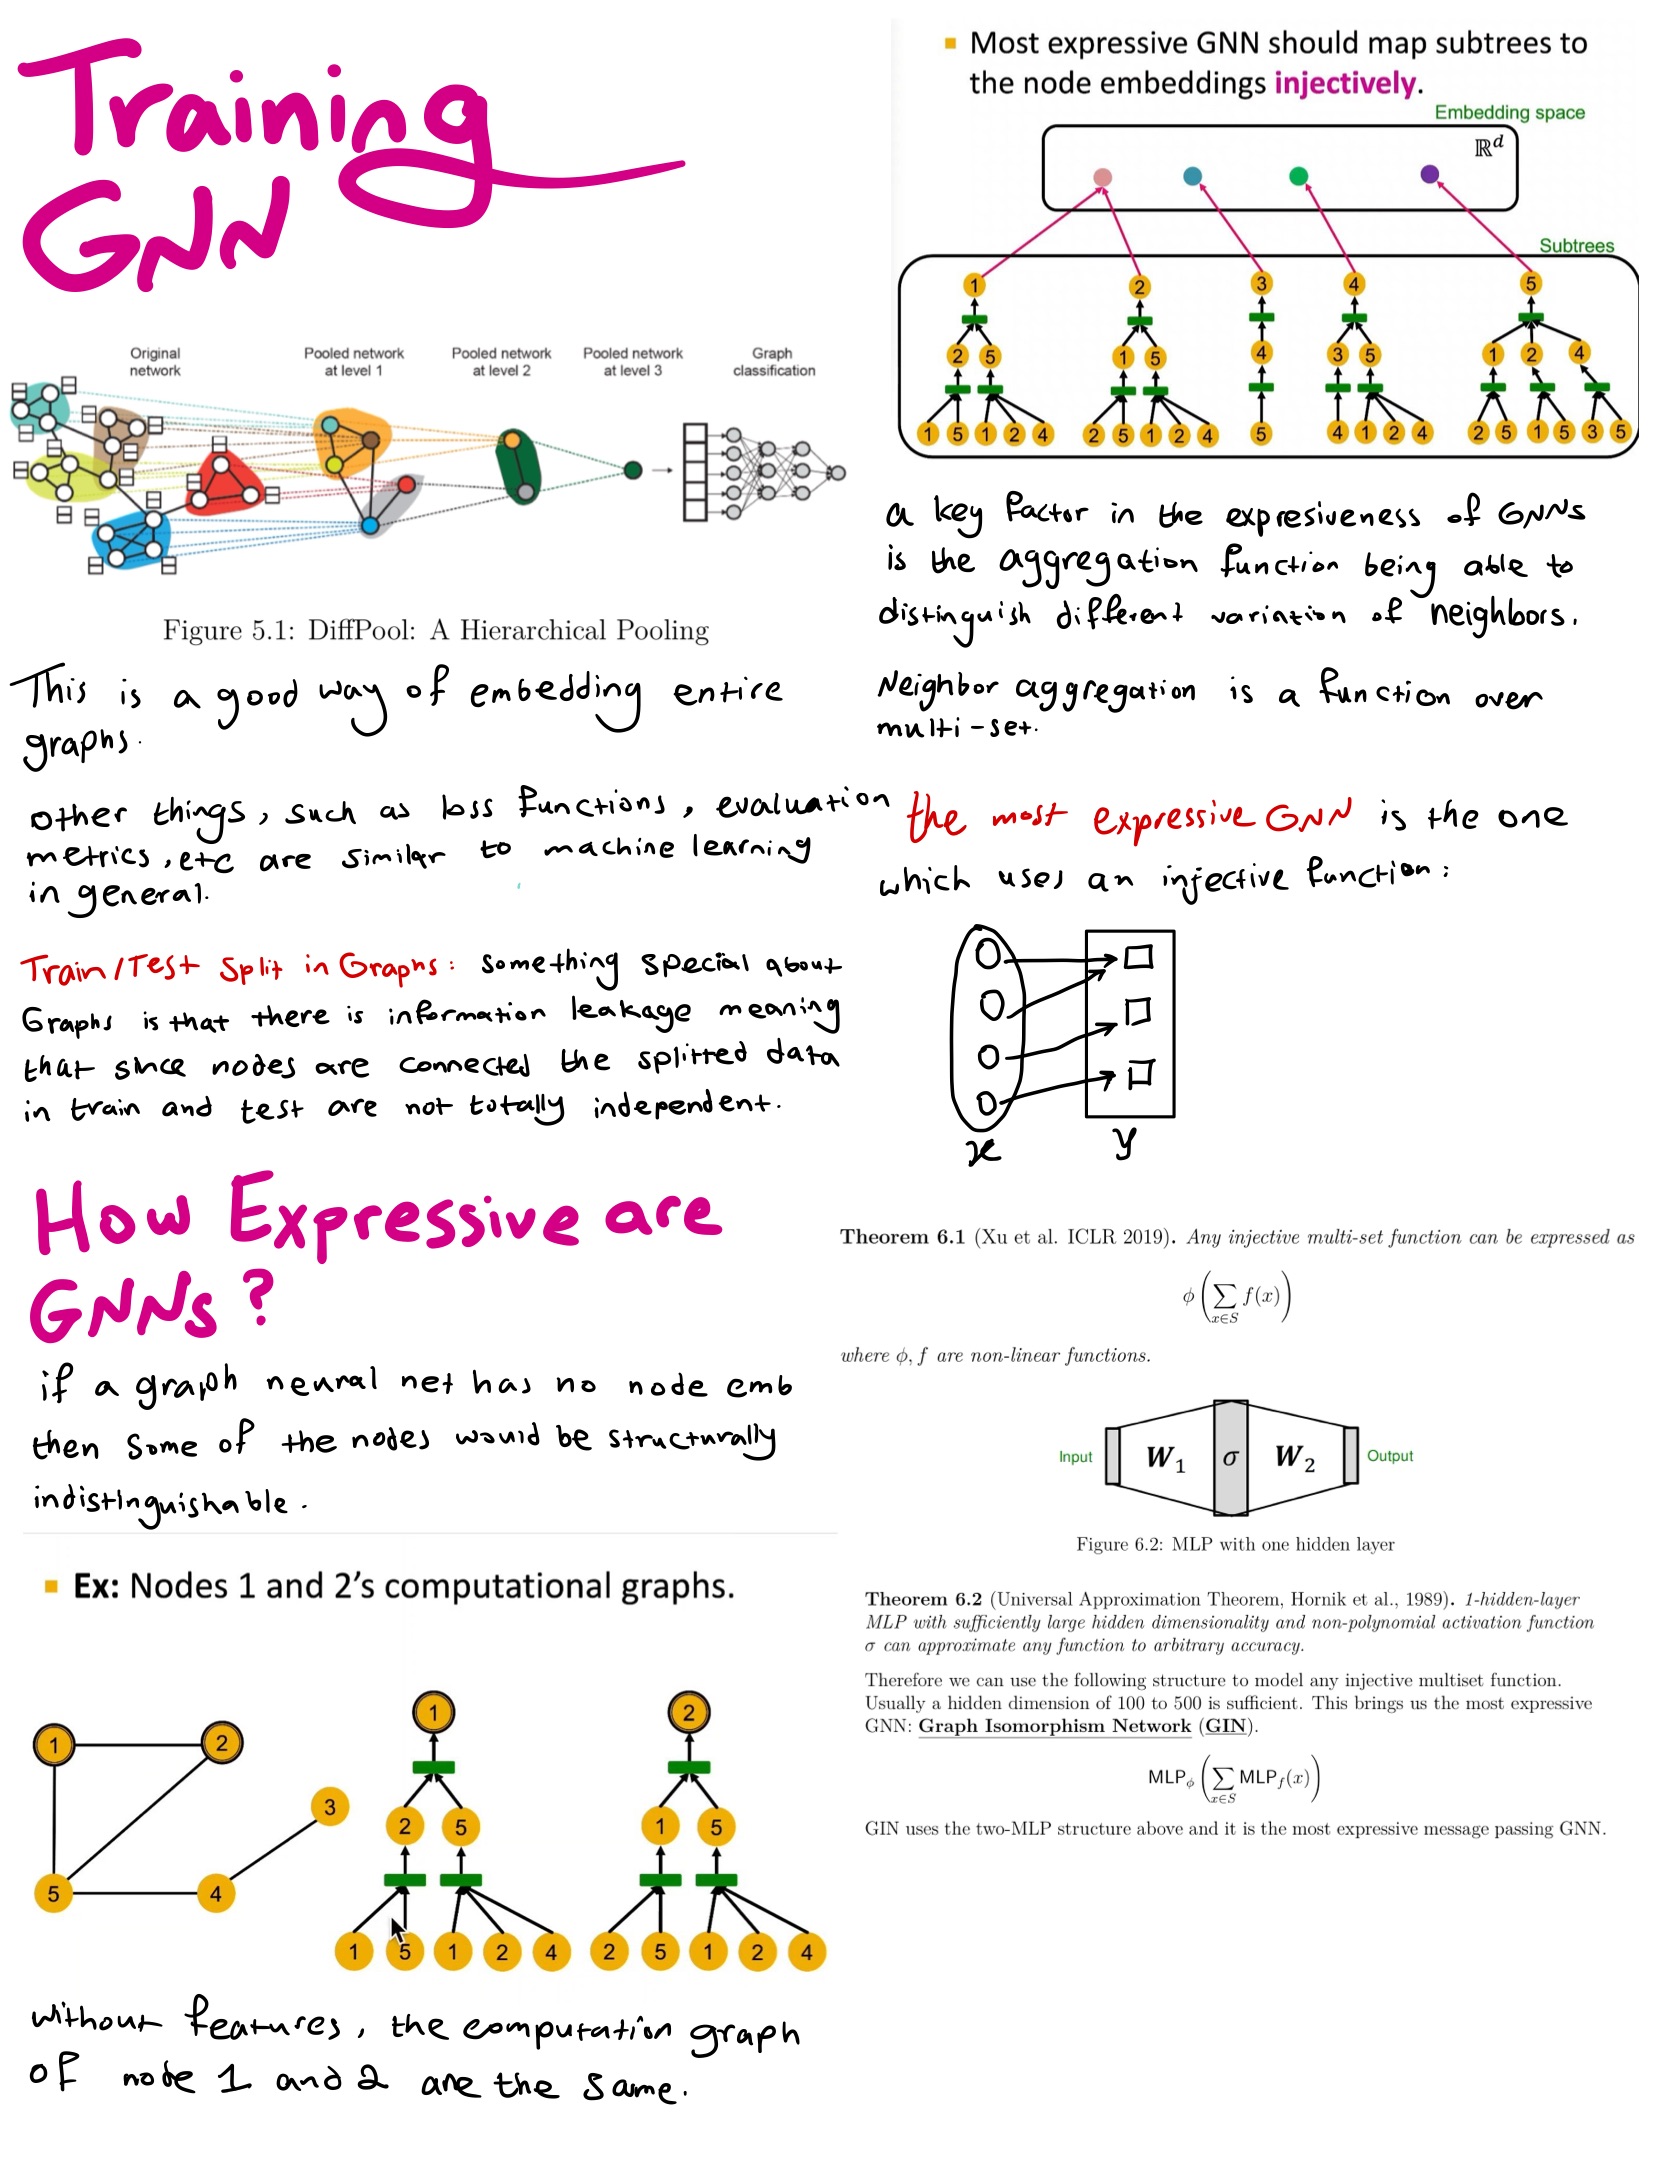 Training
GNN
Original
network
Pooled network
at level 1
Pooled network
at level 2
Pooled network
at level 3
Graph
classification
Figure 5.1: DiffPool: A Hierarchical Pooling
This is a good way of embedding entire
graphs.
other things, such as loss functions, evaluation
metrics, etc are similar to machine learning
in general.
Train/Test Split in Graphs: something special about
Graphs is that there is information leakage meaning
that since nodes are connected the splitted data
in train and test are not totally independent.
How Expressive are
GNNs?
if a graph neural net has no node emb
then some of the nodes would be structurally
indistinguishable.
▪ Ex: Nodes 1 and 2's computational graphs.
1 2
3
5 4
1
2 5
1 5 1 2 4
2
1 5
2 5 1 2 4
without features, the computation graph
of node 1 and 2 are the same.
▪ Most expressive GNN should map subtrees to
the node embeddings injectively.
Embedding space
ℝᵈ
Subtrees
1 2 3 4 5
2 5 1 5 4 3 5 1 2 4
1 5 1 2 4 2 5 1 2 4 5 4 1 2 4 2 5 1 5 3 5
a key factor in the expresiveness of GNNs
is the aggregation function being able to
distinguish different variation of neighbors.
Neighbor aggregation is a function over
multi-set.
the most expressive GNN is the one
which uses an injective function:
x y
Theorem 6.1 (Xu et al. ICLR 2019). Any injective multi-set function can be expressed as
ϕ(∑x∈S f(x))
where ϕ, f are non-linear functions.
Input W₁ σ W₂ Output
Figure 6.2: MLP with one hidden layer
Theorem 6.2 (Universal Approximation Theorem, Hornik et al., 1989). 1-hidden-layer
MLP with sufficiently large hidden dimensionality and non-polynomial activation function
σ can approximate any function to arbitrary accuracy.
Therefore we can use the following structure to model any injective multiset function.
Usually a hidden dimension of 100 to 500 is sufficient. This brings us the most expressive
GNN: Graph Isomorphism Network (GIN).
MLPϕ(∑x∈S MLPf(x))
GIN uses the two-MLP structure above and it is the most expressive message passing GNN.